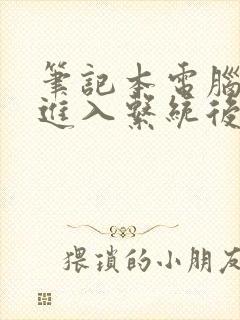 筆記本電腦
進入繫統後
猥瑣的小朋友